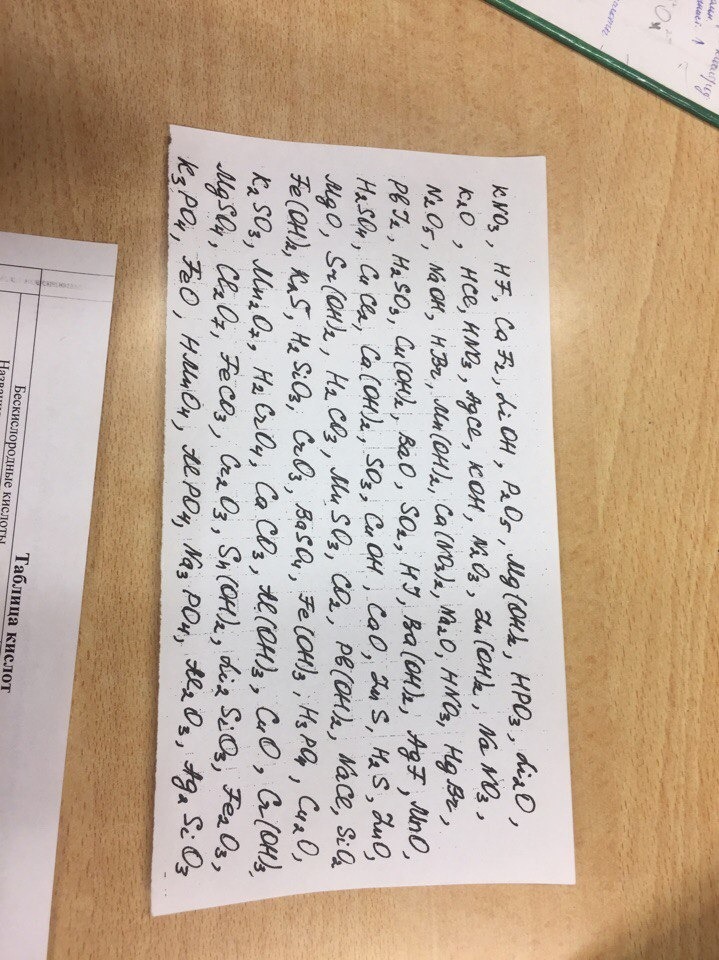 KNO3, HF, CaF2, LiOH, P2O5, Mg(OH)2, HPO3, Li2O,
K2O, HCl, HNO3, AgCl, KOH, N2O3, Zn(OH)2, NaNO3,
N2O5, NaOH, HBr, Mn(OH)2, Ca(NO3)2, Na2O, HNO3, HgBr,
PbI2, H2SO3, Cu(OH)2, BaO, SO2, HI, Ba(OH)2, AgF, MnO,
H2SO4, CuCl2, Ca(OH)2, SO3, CuOH, CaO, ZnS, H2S, ZnO,
MgO, Sr(OH)2, H2CO3, MnSO3, CO2, Pb(OH)2, NaCl, SiO2
Fe(OH)2, K2S, H2SiO3, CrO3, BaSO4, Fe(OH)3, H3PO4, Cu2O,
K2SO3, Mn2O7, H2CrO4, CaCO3, Al(OH)3, CuO, Cr(OH)3,
MgSO4, Cl2O7, FeCO3, Cr2O3, Sn(OH)2, Li2SiO3, Fe2O3,
K3PO4, FeO, HMnO4, AlPO4, Na3PO4, Al2O3, Ag2SiO3
Таблица кислот
Бескислородные кислоты